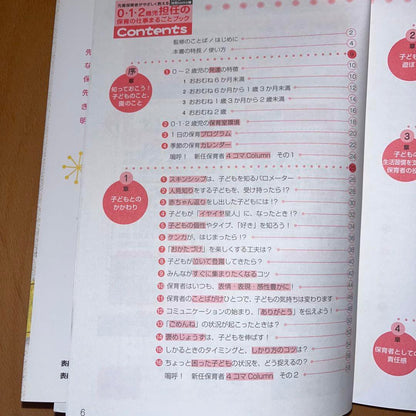 先輩保育者がやさしく教える
0・1・2歳児担任の
保育の仕事まるごとブック
Contents
監修のことば/はじめに 2
本書の特長/使い方 4
序章
知っておこう!
子どものこと、
園のこと
1 0～2歳児の発達の特徴 10
1 おおむね6か月未満
2 おおむね6か月から1歳3か月未満
3 おおむね1歳3か月から2歳未満
4 おおむね2歳
2 0・1・2歳児の保育室環境 18
3 1日の保育プログラム 20
4 季節の保育カレンダー 22
嗚呼! 新任保育者4コマColumn その1 24
1章
子どもとの
かかわり
1 スキンシップは、子どもを知るバロメーター
2 人見知りをする子どもを、受け持ったら!?
3 赤ちゃん返りをし出した子どもには!?
4 子どもが「イヤイヤ星人」に、なったとき!?
5 子どもの個性やタイプ、「好き」を知ろう!
6 ケンカが、はじまったら!?
7 「おかたづけ」を楽しくする工夫は?
8 子どもが泣いて登園してきたら?
9 みんながすぐに集まりたくなるコツ
10 保育者はいつも、表情・表現・感性豊かに!
11 保育者のことばがけひとつで、子どもの気持ちは変わります
12 コミュニケーションの始まり、「ありがとう」を伝えよう!
13 「ごめんね」の状況が起こったときは?
14 褒めじょうずは、子どもを伸ばす!
15 しかるときのタイミングと、しかり方のコツは?
16 ちょっと困った子どもの状況を、どう捉えるの?
嗚呼! 新任保育者4コマColumn その2
6
2章
子ども
遊ぼ
3章
子どもの
生活習慣を支
保育者の役
4章
保育者としての
責任感